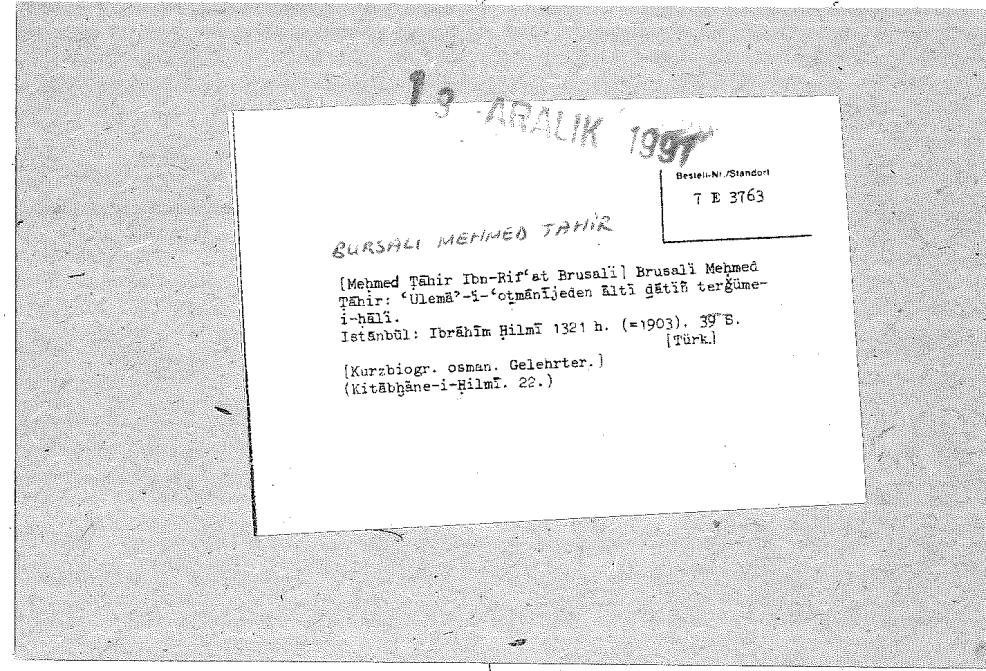 13 ARALIK 1991
Bestell-Nr./Standort
7 E 3763
BURSALI MEHMED TAHİR
[Meḥmed Ṭāhir Ibn-Rif‘at Brusalï] Brusalï Meḥmed
Ṭāhir: ‘Ulemā’-ï-‘oṯmānījeden āltï ḏātïñ terǧüme-
i-ḥālï.
Istānbūl: Ibrāhīm Ḥilmī 1321 h. (=1903). 39 S.
[Türk.]
[Kurzbiogr. osman. Gelehrter.]
(Kitābḫāne-i-Ḥilmī. 22.)